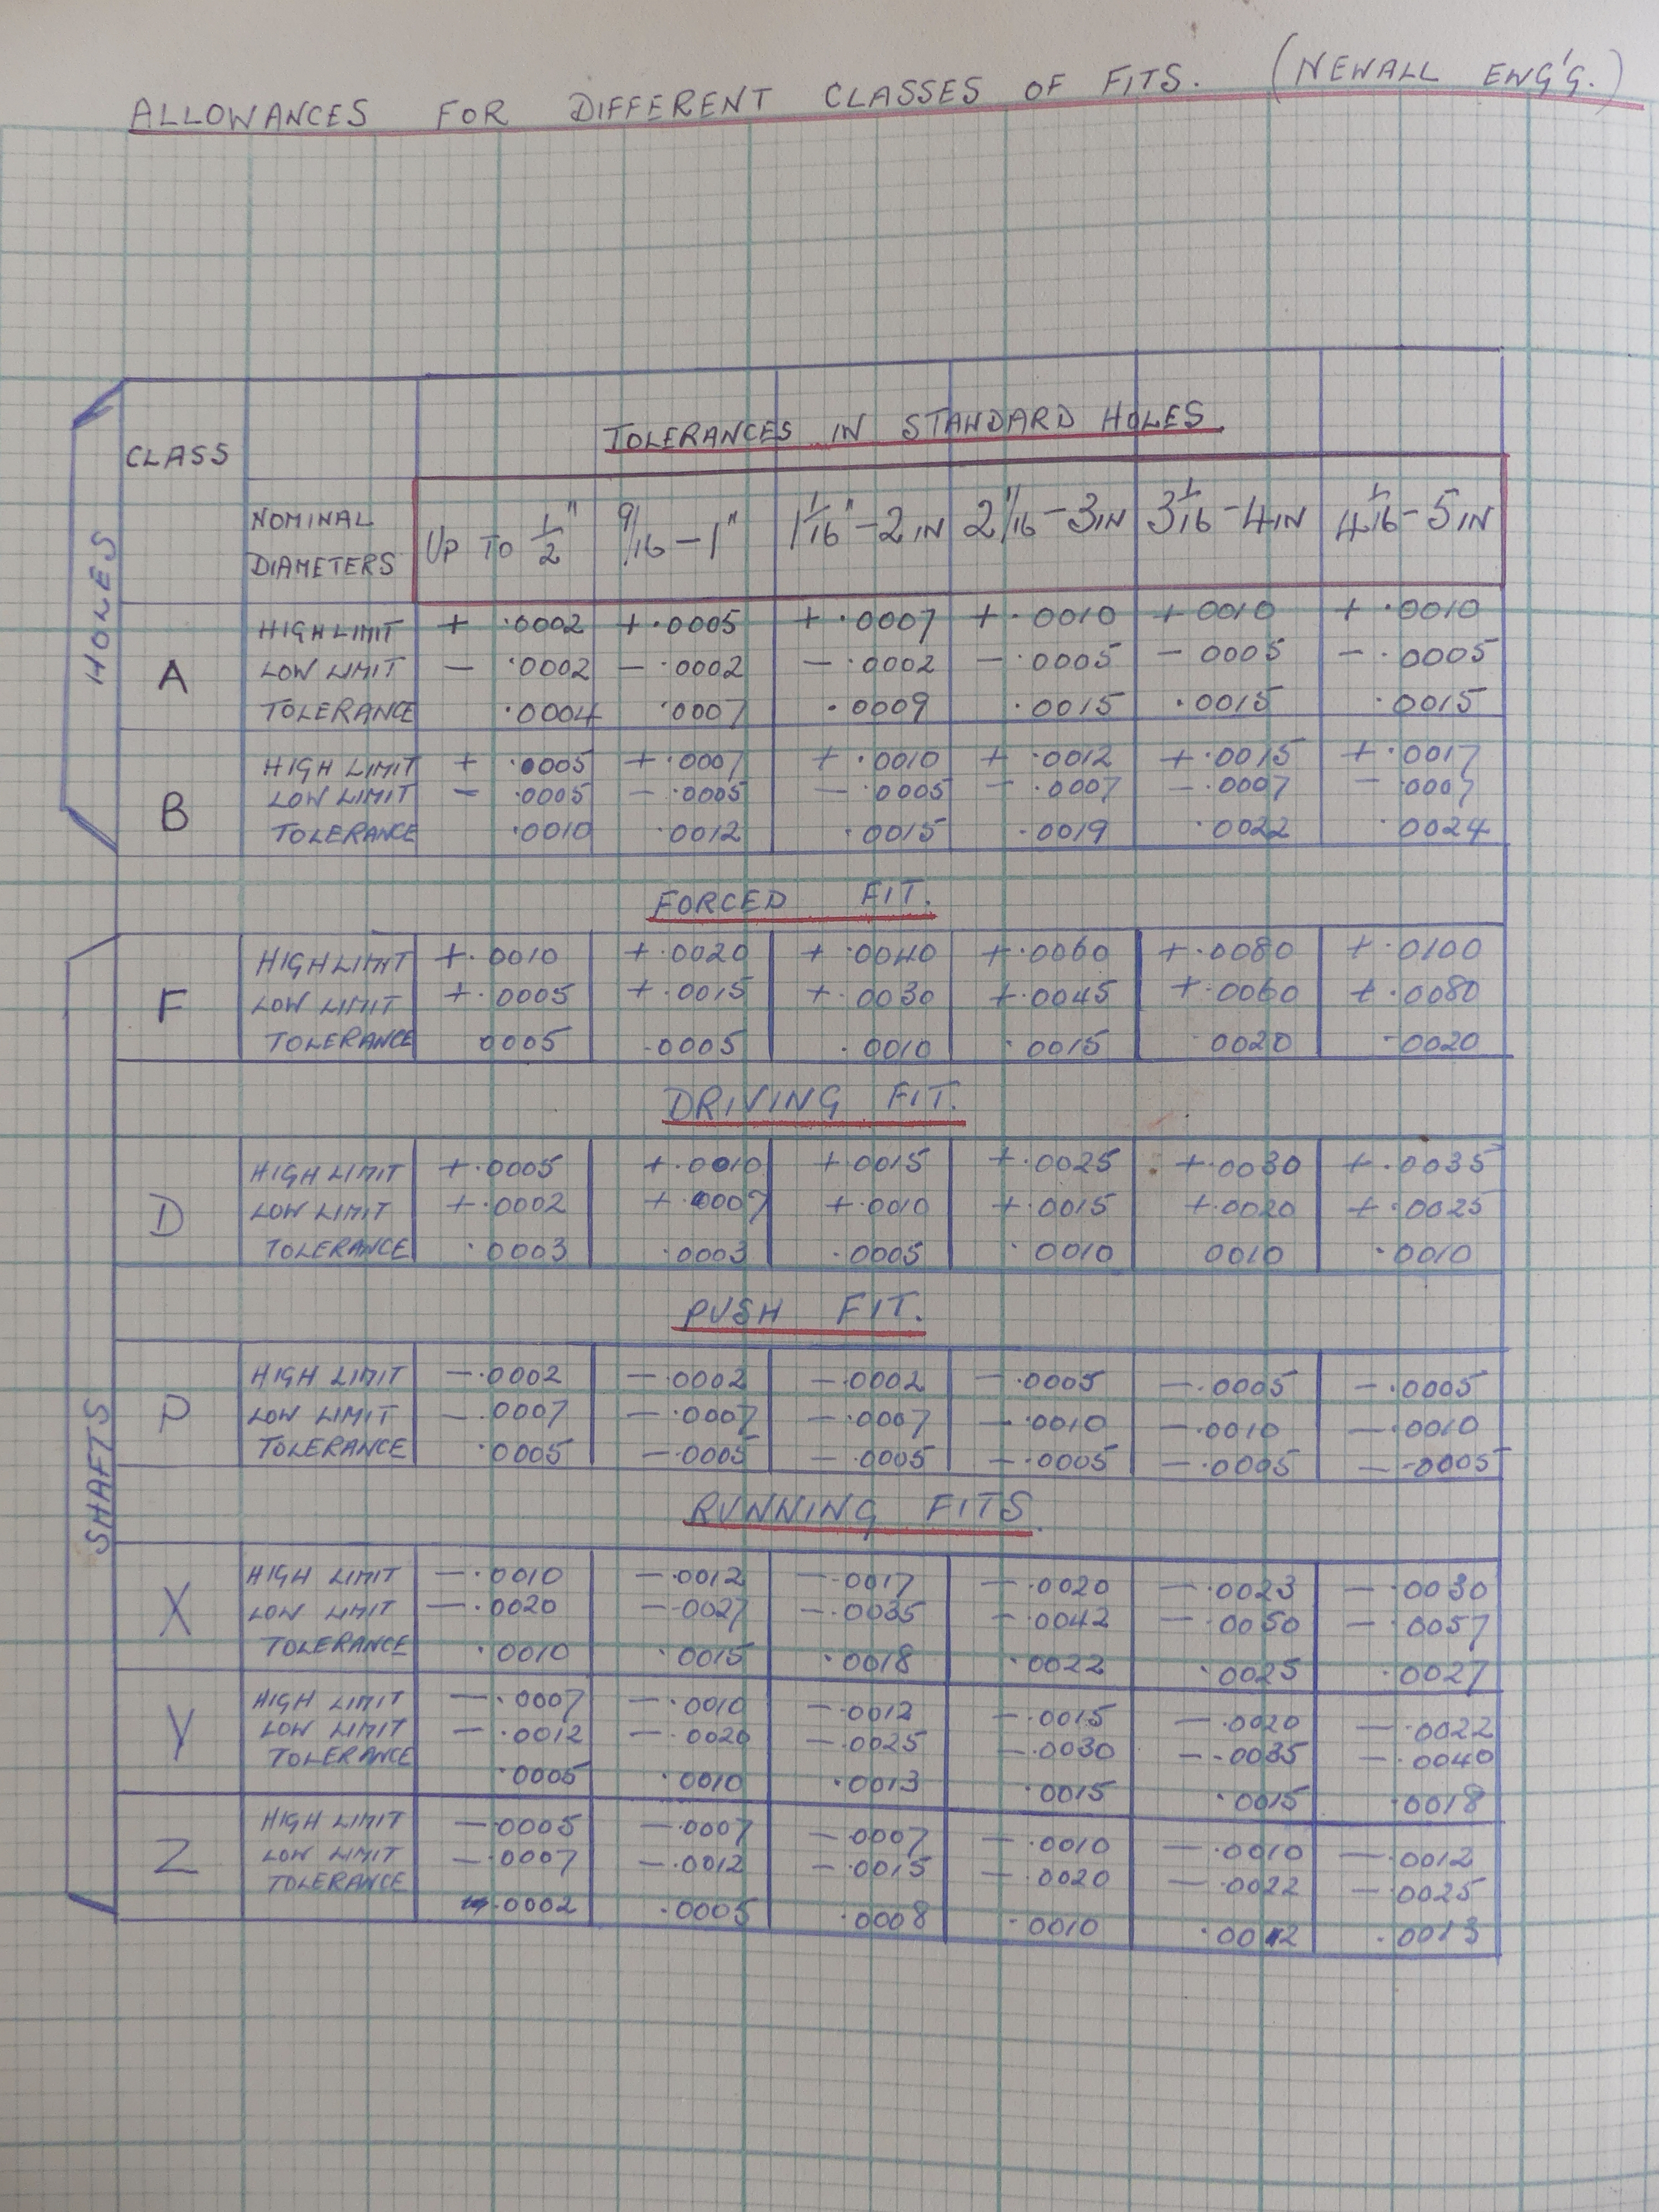 ALLOWANCES FOR DIFFERENT CLASSES OF FITS. (NEWALL ENG'G.)
HOLES
CLASS TOLERANCES IN STANDARD HOLES.
NOMINAL DIAMETERS UP TO 1/2" 9/16 - 1" 1 1/16" - 2 IN 2 1/16 - 3 IN 3 1/16 - 4 IN 4 1/16 - 5 IN
A
HIGH LIMIT + .0002 + .0005 + .0007 + .0010 + 0010 + .0010
LOW LIMIT - .0002 - .0002 - .0002 - .0005 - 0005 - .0005
TOLERANCE .0004 .0007 .0009 .0015 .0015 .0015
B
HIGH LIMIT + .0005 + .0007 + .0010 + .0012 + .0015 + .0017
LOW LIMIT - .0005 - .0005 - .0005 - .0007 - .0007 - .0007
TOLERANCE .0010 .0012 .0015 .0019 .0022 .0024
FORCED FIT.
SHAFTS
F
HIGH LIMIT +.0010 +.0020 + .0040 +.0060 +.0080 +.0100
LOW LIMIT +.0005 +.0015 +.0030 +.0045 +.0060 +.0080
TOLERANCE 0005 .0005 .0010 .0015 0020 .0020
DRIVING FIT.
D
HIGH LIMIT +.0005 +.0010 +.0015 +.0025 +.0030 +.0035
LOW LIMIT +.0002 +.0007 +.0010 +.0015 +.0020 +.0025
TOLERANCE .0003 .0003 .0005 .0010 0010 .0010
PUSH FIT.
P
HIGH LIMIT -.0002 -.0002 -.0002 -.0005 -.0005 -.0005
LOW LIMIT -.0007 -.0007 -.0007 -.0010 -.0010 -.0010
TOLERANCE .0005 -.0005 -.0005 -.0005 -.0005 -.0005
RUNNING FITS.
X
HIGH LIMIT -.0010 -.0012 -.0017 -.0020 -.0023 -.0030
LOW LIMIT -.0020 -.0027 -.0035 -.0042 -.0050 -.0057
TOLERANCE .0010 .0015 .0018 .0022 .0025 .0027
Y
HIGH LIMIT -.0007 -.0010 -.0012 -.0015 -.0020 -.0022
LOW LIMIT -.0012 -.0020 -.0025 -.0030 -.0035 -.0040
TOLERANCE .0005 .0010 .0013 .0015 .0015 .0018
Z
HIGH LIMIT -.0005 -.0007 -.0007 -.0010 -.0010 -.0012
LOW LIMIT -.0007 -.0012 -.0015 -.0020 -.0022 -.0025
TOLERANCE .0002 .0005 .0008 .0010 .0012 .0013